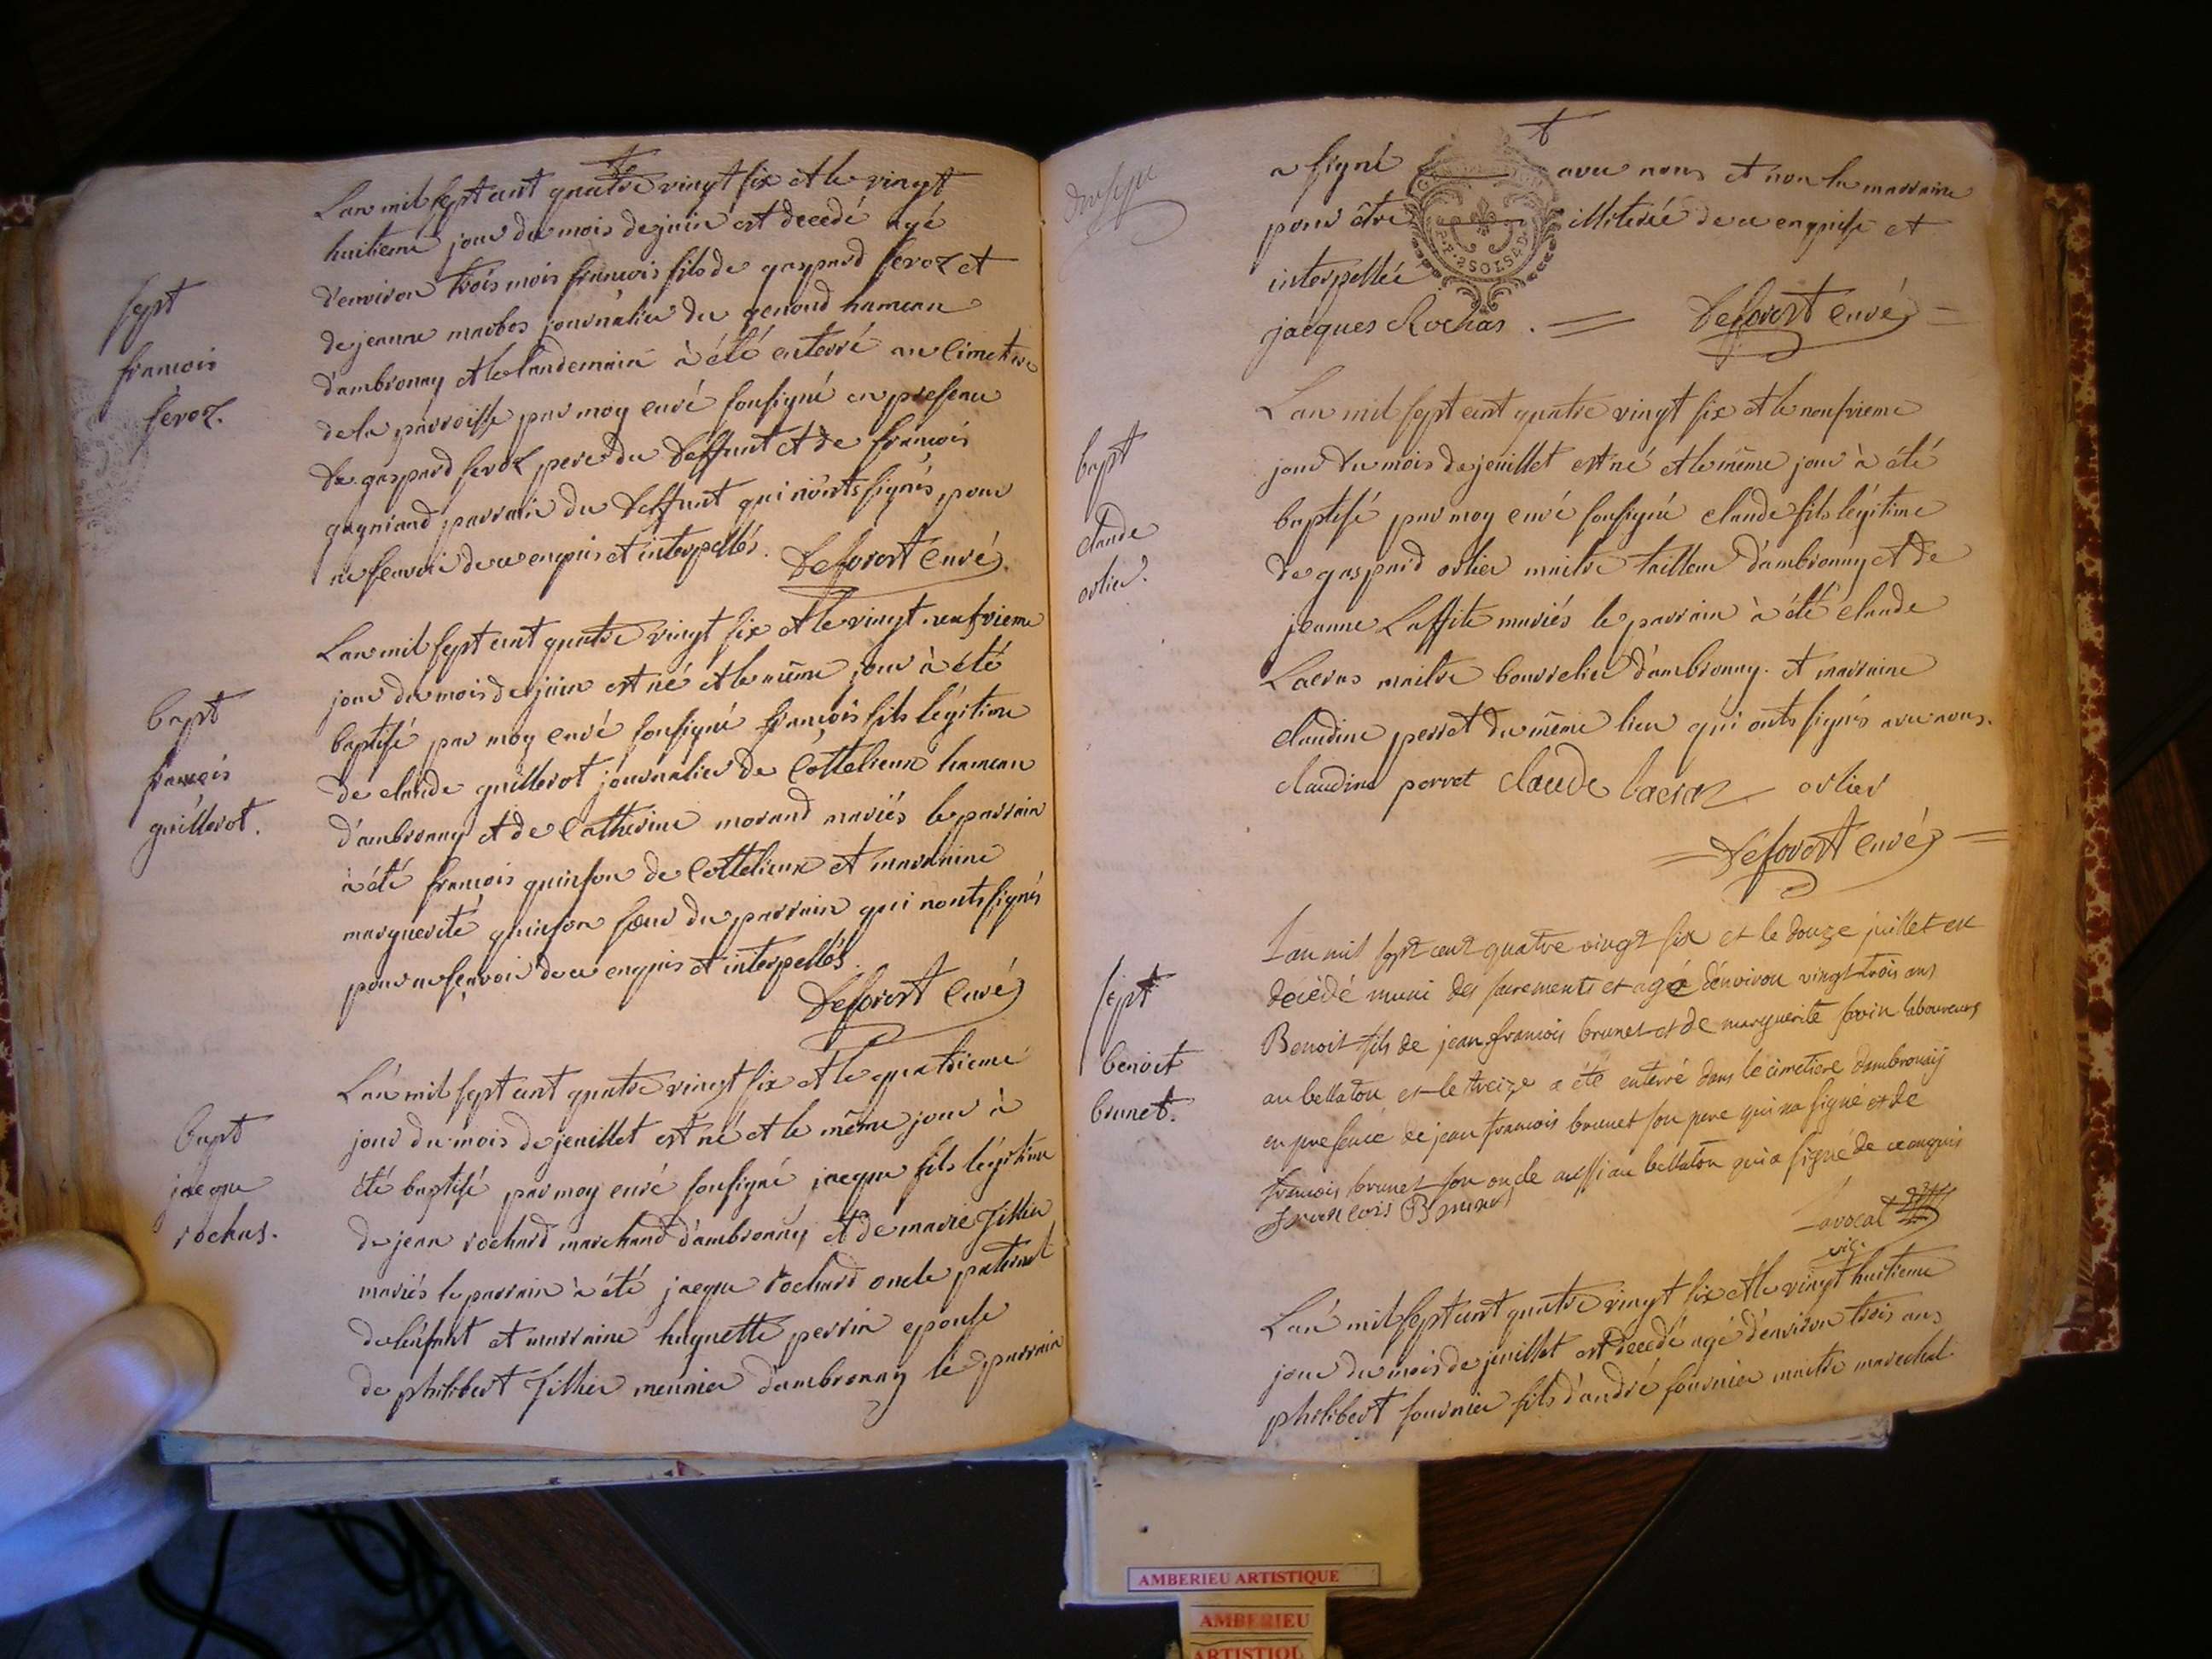 Lan mil sept cent quatre vingt six et le vingt
huitieme jour du mois de juin est decedé agé
d'environ trois mois francois fils de gaspard feroz et
de jeanne marbos journalier du genoud hameau
d'ambronay et le landemain à été enterré au cimetiere
de la parroisse par moy curé sousigné en presence
de gaspard feroz pere du deffunt et de françois
gagniand parrain du deffunt qui n'onts signés pour
ne scavoir de ce enquis et interpellés. Deforest curé.
sept
francois
feroz.
Lan mil sept cent quatre vingt six et le vingt neufvieme
jour du mois de juin est né et le même jour à été
baptisé par moy curé sousigné francois fils légitime
de claude guillerot journalier de Cottelieux hameau
d'ambronay et de Catherine morand mariés le parrain
à été francois quinson de Cottelieux et marraine
marguerite quinson sœur du parrain qui n'onts signés
pour ne sçavoir de ce enquis et interpellés.
Deforest curé
bapt
francois
guillerot.
Lan mil sept cent quatre vingt six et le quatrieme
jour du mois de jeuillet est né et le même jour à
été baptisé par moy curé sousigné jacque fils légitime
de jean rochard marchand d'ambronay et de marie Tillier
mariés le parrain à été jacque rochard oncle paternel
de l'enfant et marraine huguette perrin epouse
de philibert Tillier meunier d'ambronay le parrain
bapt
jacque
rochas.
a signé avec nous et non la marraine
pour être illiterée de ce enquise et
interpellée
jacques Rochas. Deforest curé
Lan mil sept cent quatre vingt six et le neufvieme
jour du mois de jeuillet est né et le même jour à été
baptisé par moy curé sousigné claude fils légitime
de gaspard orlier maitre tailleur d'ambronay et de
jeanne Laffite mariés le parrain à été claude
Lacras maitre bourrelier d'ambronay. et marraine
claudine perret du même lieu qui onts signés avec nous.
claudine perret claude lacraz orlier
Deforest curé
bapt
claude
orlier.
Lan mil sept cent quatre vingt six et le douze juillet est
decédé muni des sacrements et agé d'environ vingt trois ans
Benoit fils de jean francois brunet et de marguerite savin laboureurs
au bellaton et le treize a été enterré dans le cimetiere dambronay
en presence de jean francois brunet son pere qui na signé et de
francois brunet son oncle aussi au bellaton qui a signé de ce enquis
francois Brunet
Lavocat
vic.
sept
benoit
brunet.
Lan mil sept cent quatre vingt six et le vingt huitieme
jour du mois de jeuillet est decedé agé d'environ trois ans
philibert fournier fils d'andré fournier maitre marechal
AMBERIEU ARTISTIQUE
AMBERIEU